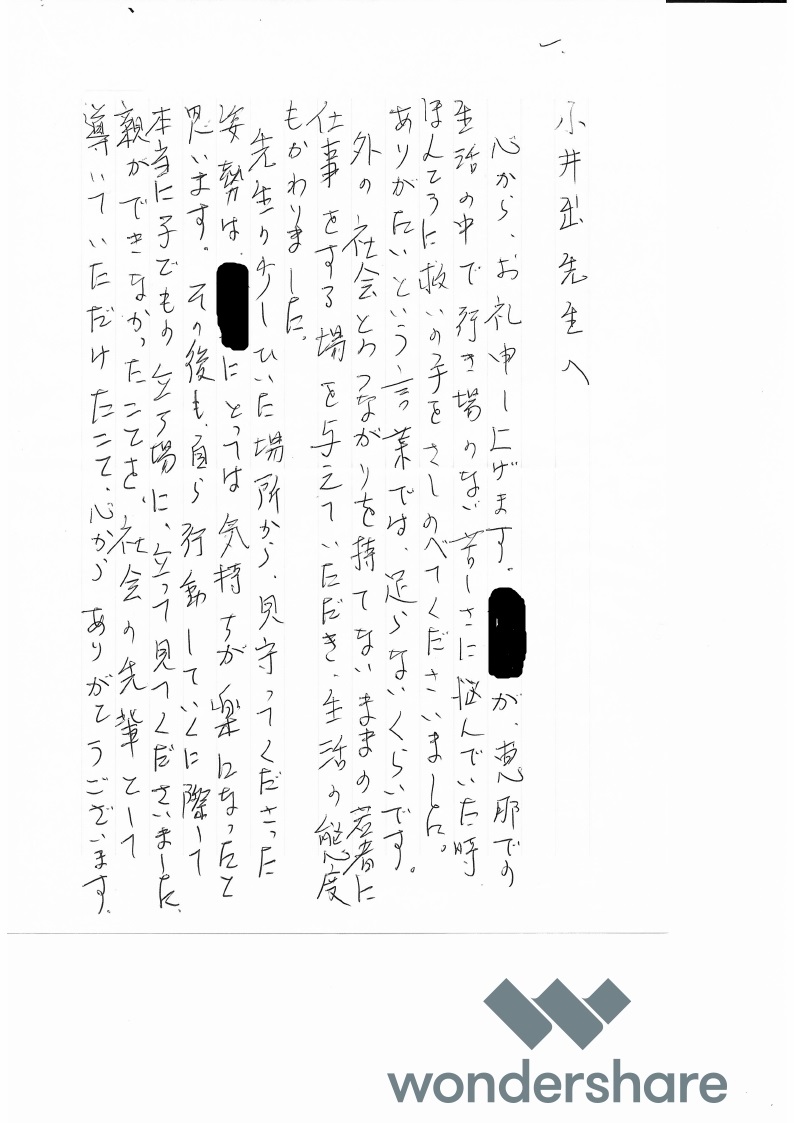 一.
小井出先生へ
心から、お礼申し上げます。が、恵那での
生活の中で行き場のない苦しさに悩んでいた時
ほんとうに救いの手をさしのべてくださいました。
ありがたいという言葉では、足らないくらいです。
外の社会とのつながりを持てないままの若者に
仕事をする場を与えていただき、生活の態度
もかわりました。
先生の少しひいた場所から、見守ってくださった
姿勢は、にとっては気持ちが楽になったと
思います。その後も、自ら行動していくに際して
本当に子どもの立場に、立って見てくださいました。
親ができなかったことを、社会の先輩として
導いていただけたこと、心からありがとうございます。
wondershare